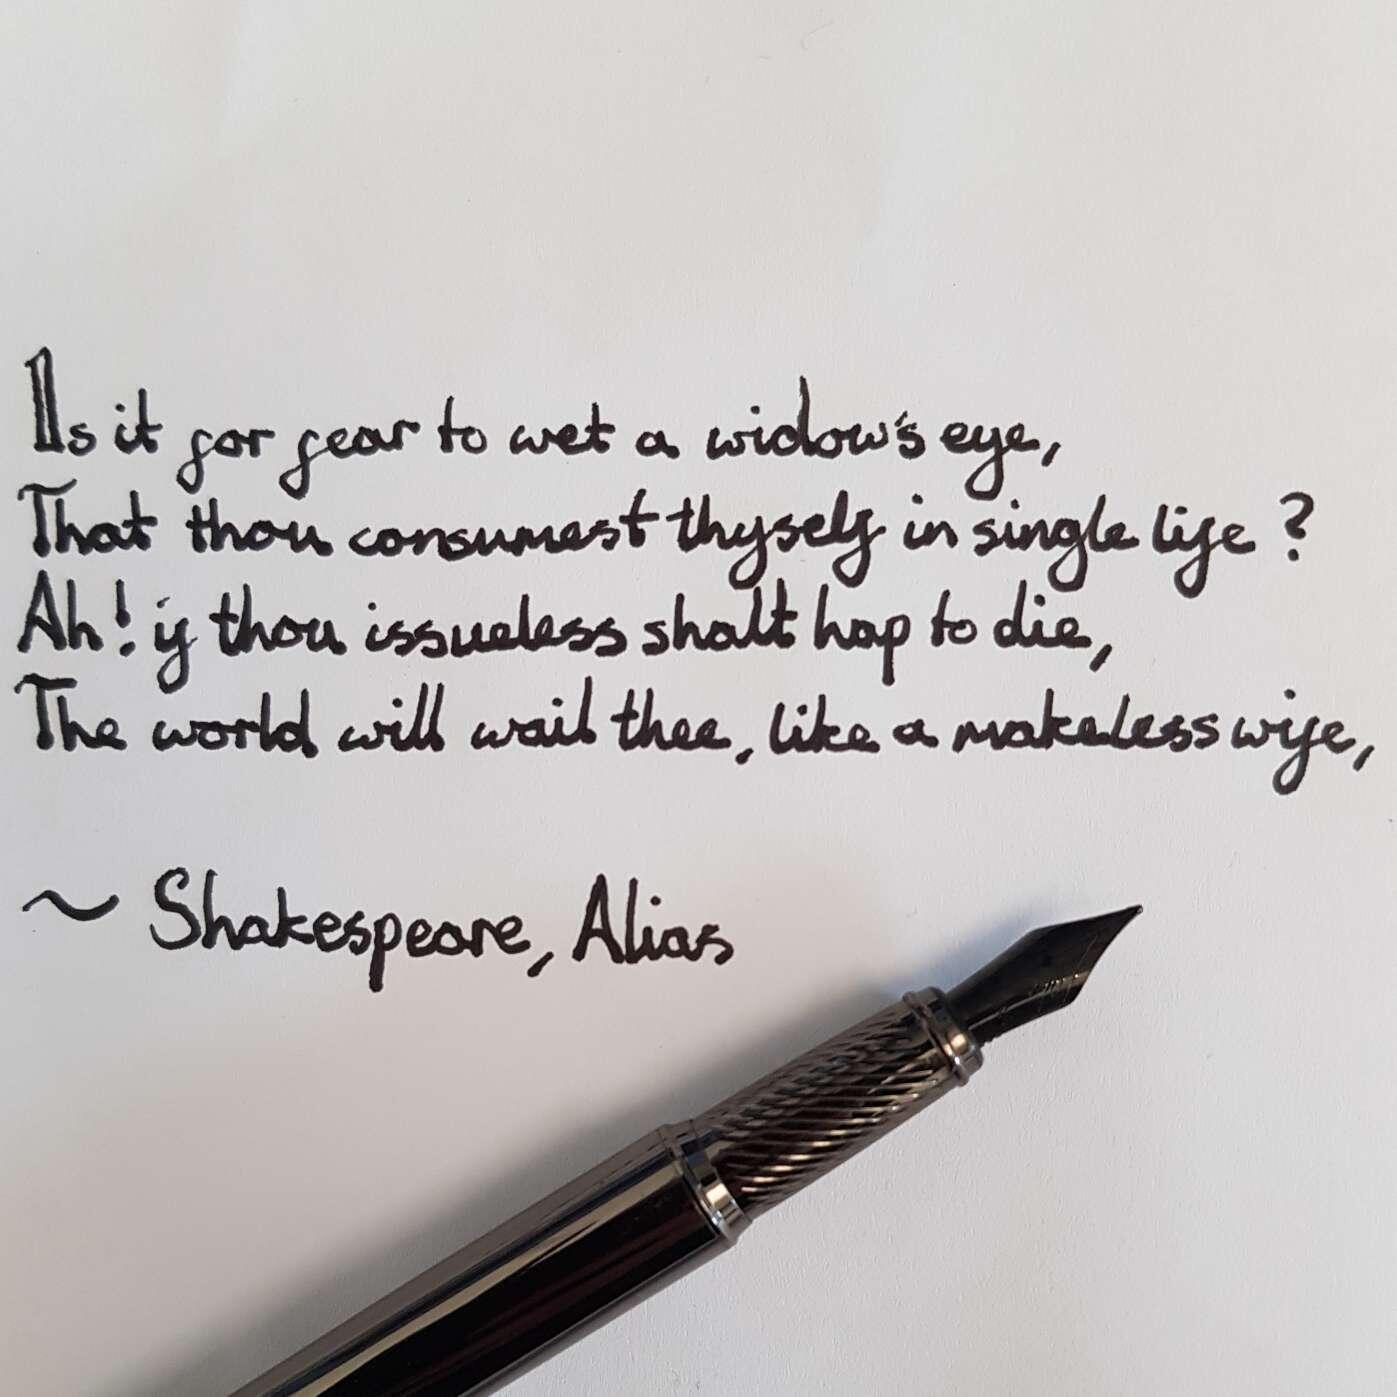 Is it for fear to wet a widow's eye,
That thou consumest thyself in single life?
Ah! if thou issueless shalt hap to die,
The world will wail thee, like a makeless wife,
~ Shakespeare, Alias